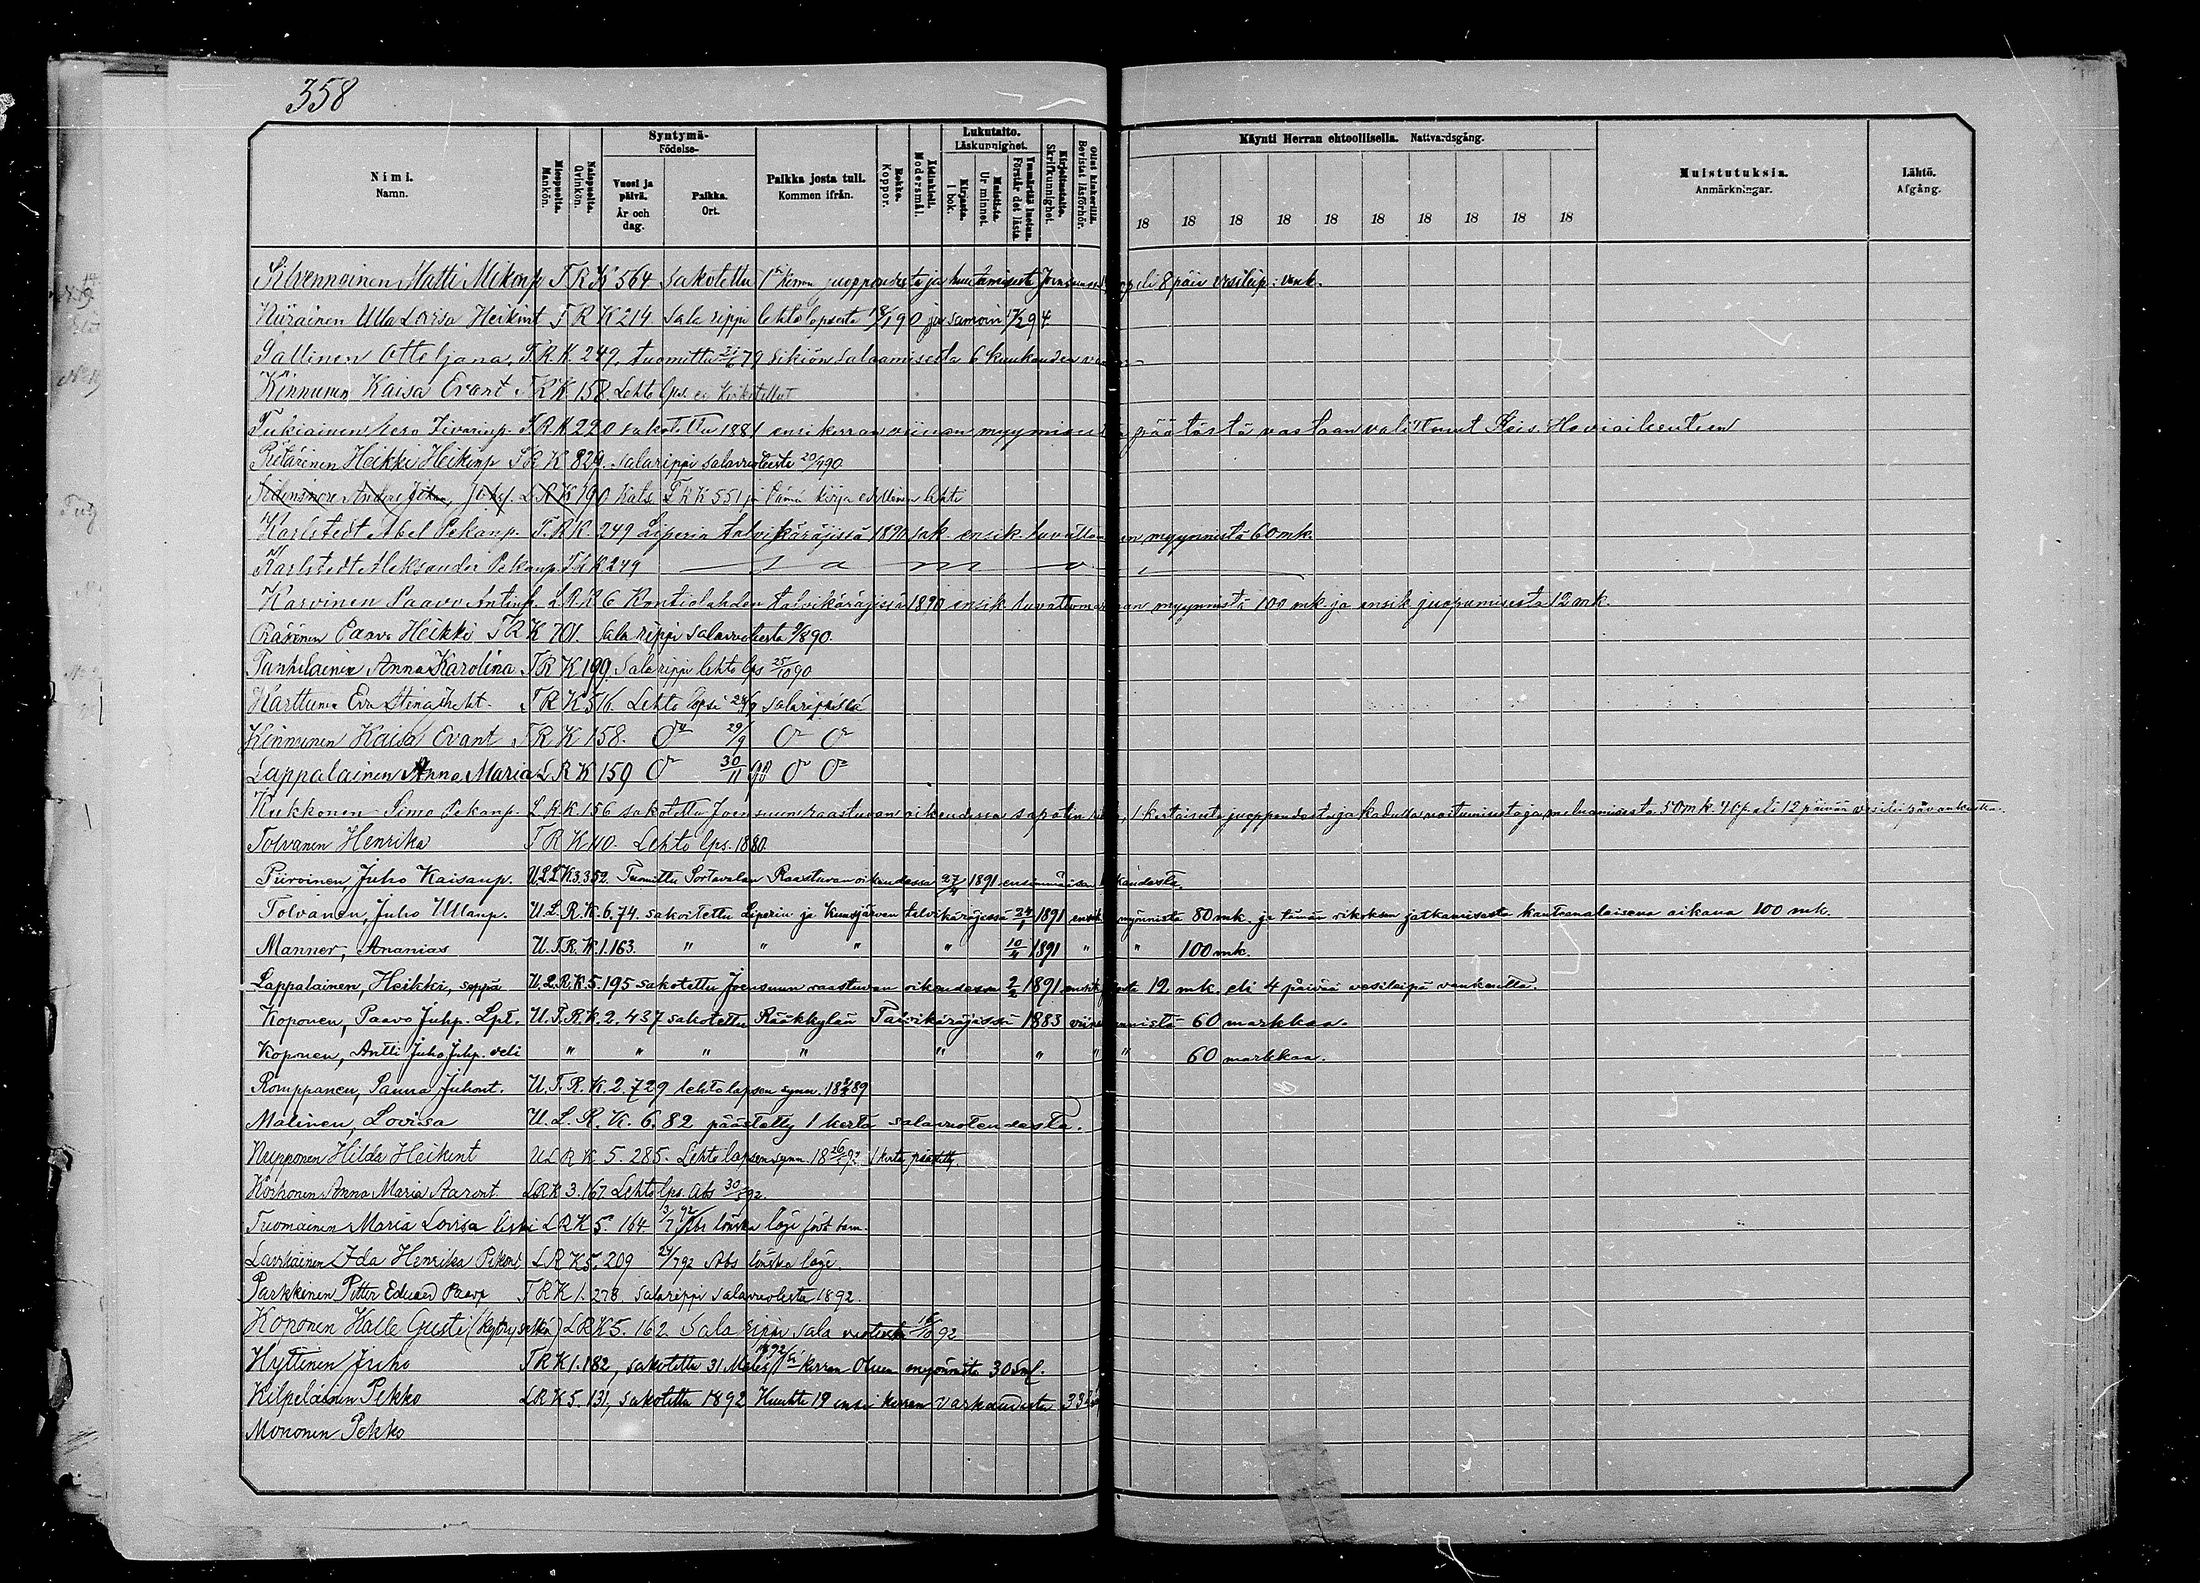 358
Nimi. Namn.
Miespuolia. Mankön.
Naispuolia. Qvinkön.
Syntymä- Födelse-
Vuosi ja päivä. År och dag.
Paikka. Ort.
Paikka josta tuli. Kommen ifrån.
Rokko. Koppor.
Äidinkieli. Modersmål.
Lukutaito. Läskunnighet.
Kirjasta. I bok.
Muistista. Ur minnet.
Ymmärtää luetun. Förstår det lästa.
Kirjoitustaito. Skrifkunnighet.
Ollut kinkerillä. Bevistat läsförhör.
Käynti Herran ehtoollisella. Nattvardsgång.
18 18 18 18 18 18 18 18 18 18
Muistutuksia. Anmärkningar.
Lähtö. Afgång.
Silvennoinen Matti Mikonp T R K 564 Sakotettu 1 kerran juoppoudesta ja eli 8 päiv vesileip: vank.
Kiiräinen Ulla Lovisa Heikint T R K 214 Sala rippi lehtolapsesta 18/1 90 ja samoin 1/2 94.
Pallinen Otteljana, T.R.K. 249, tuomittu 79 sikiön salaamisesta 6 kuukauden
Kinnunen Kaisa Evant T R K 158. Lehto lps. ei
Tukiainen Eero Iivarinp. T.R.K 220 sakotettu 1881 ensikerran viinan myymisestä päätöstä vastaan valittanut Keis. Hovioikeuteen
Pietarinen Heikki Heikinp T R K 829. salarippi salavuoteesta 20/4 90.
L R K 190 Kats. T R K 551 ja tämä kirja edellinen lehti
Karlstedt Abel Pekanp. T.R.K. 249 Liperin talvikäräjissä 1890 sak. ensik. luvattoman myynnistä 60 mk.
Karlstedt Aleksander Pekanp. T R K 249 s a m o i
Karvinen Paavo Antinp. L R K 6 Kontiolahden talvikäräjissä 1890 ensik luvattoman myynnistä 100 mk ja ensik juopumisesta 12 mk.
Räsänen Paavo Heikki T R K 701. Sala rippi salavuoteesta 9/8 90.
Tanhilainen Anna Karolina T R K 199. Salarippi lehto lps 25/10 90
Karttunen Eva Stina T R K 516. Lehto lapsi 24/9 salaripillä
Kinnunen Kaisa Evant T R K 158. Oo 29/9 Oo Oo
Lappalainen Anna Maria L R K 159 Oo 30/11 90 Oo Oo
Kukkonen Simo Pekanp. L R K 156 sakotettu Joensuun raastuvan oikeudessa sapatin rikk, 1 kertaisesta juoppoudesta ja kadulla ja meluamisesta 50 mk 40 p. eli 12 päivän vesileipävankeutta.
Tolvanen Henrika T R K 110. Lehto lps. 1880.
Piiroinen, Juho Kaisanp. U.L.L.K.3.352. Tuomittu Sortavalan Raastuvan oikeudessa 27/4 1891 ensimmäisen
Tolvanen, Juho Ullanp. U.L.R.K.6.74. sakoitettu Liperin ja Kuusjärven talvikäräjissä 24/1 1891 ensik myönnistä 80 mk. ja tämän rikoksen jatkamisesta kanteenalaisena aikana 100 mk.
Manner, Ananias U.T.R.K.1.163. " " " " 10/4 1891 " " 100 mk.
Lappalainen, Heikki, seppä U.L.R.K.5.195 sakotettu Joensuun raastuvan oikeudessa 2/2 1891 ensik 12 mk. eli 4 päivää vesileipä vankeutta.
Koponen, Paavo Juhp. Lpt. U.T.R.K.2.437 sakotettu Rääkkylän Talvikäräjissä 1883 viinan 60 markkaa.
Koponen, Antti Juho Juhp. veli " " " " " " " " 60 markkaa.
Romppanen, Sanna Juhont. U.T.R.K.2.729 lehtolapsen synn. 89
Malinen, Lovisa U.L.R.K.6.82 päästetty 1 kerta salavuoteudesta.
Kupponen Hilda Heikint U L R K 5.285. Lehto lapsen synn. 92 1 kerta päästetty.
Korhonen Anna Maria Aaront L R K 3.167 Lehto lps. Abs 30/ 92.
Tuomainen Maria Lovisa leski L R K 5. 164 13/7 92 Abs lönska läge
Laukkanen Ida Henrika Pekont L R K 5. 209 24/7 92 Abs lönska läge.
Parkkinen Petter Eduard Paavp T R K 1. 278. Salarippi salavuoteesta 1892.
Koponen Kalle Gusti L R K 5. 162 Sala rippi sala vuoteesta 92
Hyttinen Juho T R K 1. 182, sakotettu 31 1892 1 kerran Oluen myönnistä 30
Kilpeläinen Pekko L R K 5. 131, Sakotettu 1892 Huuhti 19 ensi kerran varkaudesta 33
Mononen Pekko